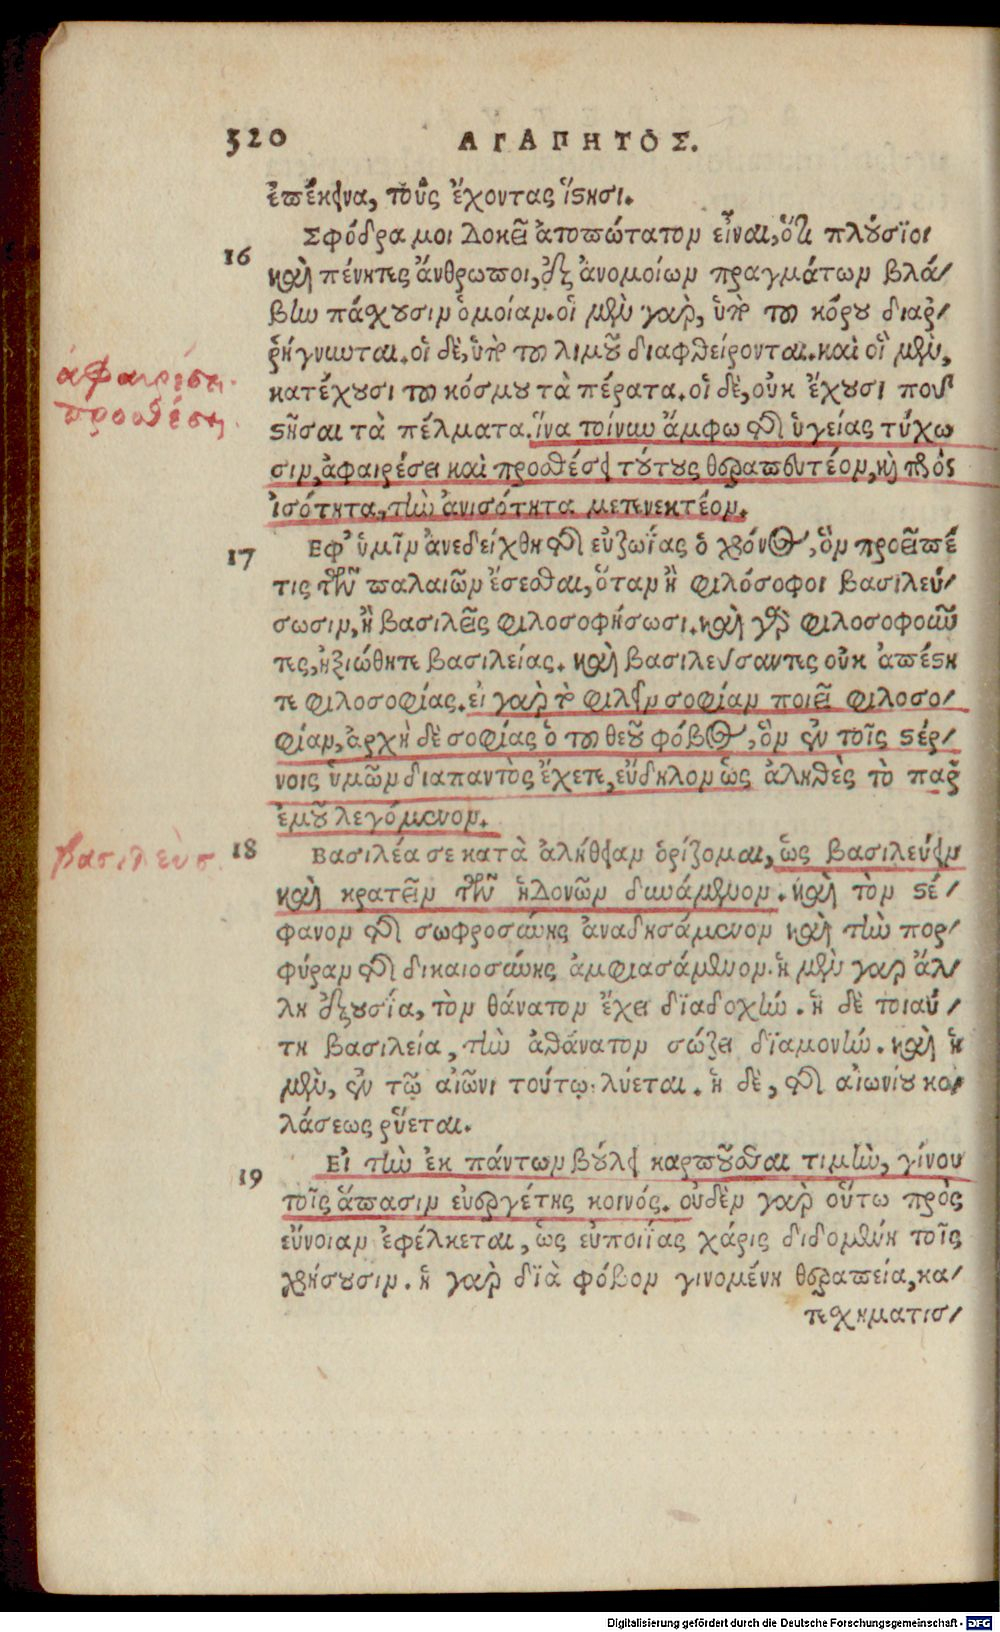 320 ΑΓΑΠΗΤΟΣ.
ἐπέκεινα, τοὺς ἔχοντας ἵστησι.
16 Σφόδρα μοι δοκεῖ ἀτοπώτατον εἶναι, ὅτι πλούσιοι
καὶ πένητες ἄνθρωποι, ἐξ ἀνομοίων πραγμάτων βλά-
βην πάσχουσιν ὁμοίαν. οἱ μὲν γὰρ, ὑπὸ τοῦ κόρου διαρ-
ρήγνυνται. οἱ δὲ, ὑπὸ τοῦ λιμοῦ διαφθείρονται. καὶ οἱ μὲν,
κατέχουσι τοῦ κόσμου τὰ πέρατα. οἱ δὲ, οὐκ ἔχουσι ποῦ
στῆσαι τὰ πέλματα. ἵνα τοίνυν ἄμφω τῆς ὑγείας τύχω
σιν, ἀφαιρέσει καὶ προσθέσει τούτους θεραπευτέον, καὶ πρὸς
ἰσότητα, τὴν ἀνισότητα μετενεκτέον.
ἀφαιρέσει.
προσθέσει
17 Εφ' ὑμῖν ἀνεδείχθη τῆς εὐζωΐας ὁ χρόνος, ὃν προεῖπέ
τις τῶν παλαιῶν ἔσεσθαι, ὅταν ἢ φιλόσοφοι βασιλεύ-
σωσιν, ἢ βασιλεῖς φιλοσοφήσωσι. καὶ γὰρ φιλοσοφοῦν
τες, ἠξιώθητε βασιλείας. καὶ βασιλεύσαντες οὐκ ἀπέστη
τε φιλοσοφίας. εἰ γὰρ τὸ φιλεῖν σοφίαν ποιεῖ φιλοσο-
φίαν, ἀρχὴ δὲ σοφίας ὁ τοῦ θεοῦ φόβος, ὃν ἐν τοῖς στέρ-
νοις ὑμῶν διαπαντὸς ἔχετε, εὔδηλον ὡς ἀληθὲς τὸ παρ'
ἐμοῦ λεγόμενον.
18 Βασιλέα σε κατὰ ἀλήθειαν ὁρίζομαι, ὡς βασιλεύειν
καὶ κρατεῖν τῶν ἡδονῶν δυνάμενον. καὶ τὸν στέ-
φανον τῆς σωφροσύνης ἀναδησάμενον καὶ τὴν πορ-
φύραν τῆς δικαιοσύνης ἀμφιασάμενον. ἡ μὲν γὰρ ἄλ-
λη ἐξουσία, τὸν θάνατον ἔχει διαδοχήν. ἡ δὲ τοιαύ-
τη βασιλεία, τὴν ἀθάνατον σώζει διαμονήν. καὶ ἡ
μὲν, ἐν τῷ αἰῶνι τούτῳ λύεται. ἡ δὲ, τῆς αἰωνίου κο-
λάσεως ῥύεται.
βασιλεὺς.
19 Εἰ τὴν ἐκ πάντων βούλει καρποῦσθαι τιμὴν, γίνου
τοῖς ἅπασιν εὐεργέτης κοινός. οὐδὲν γὰρ οὕτω πρὸς
εὔνοιαν ἐφέλκεται, ὡς εὐποιΐας χάρις διδομένη τοῖς
χρήζουσιν. ἡ γὰρ διὰ φόβον γινομένη θεραπεία, κα-
τεσχηματισ-
Digitalisierung gefördert durch die Deutsche Forschungsgemeinschaft - DFG